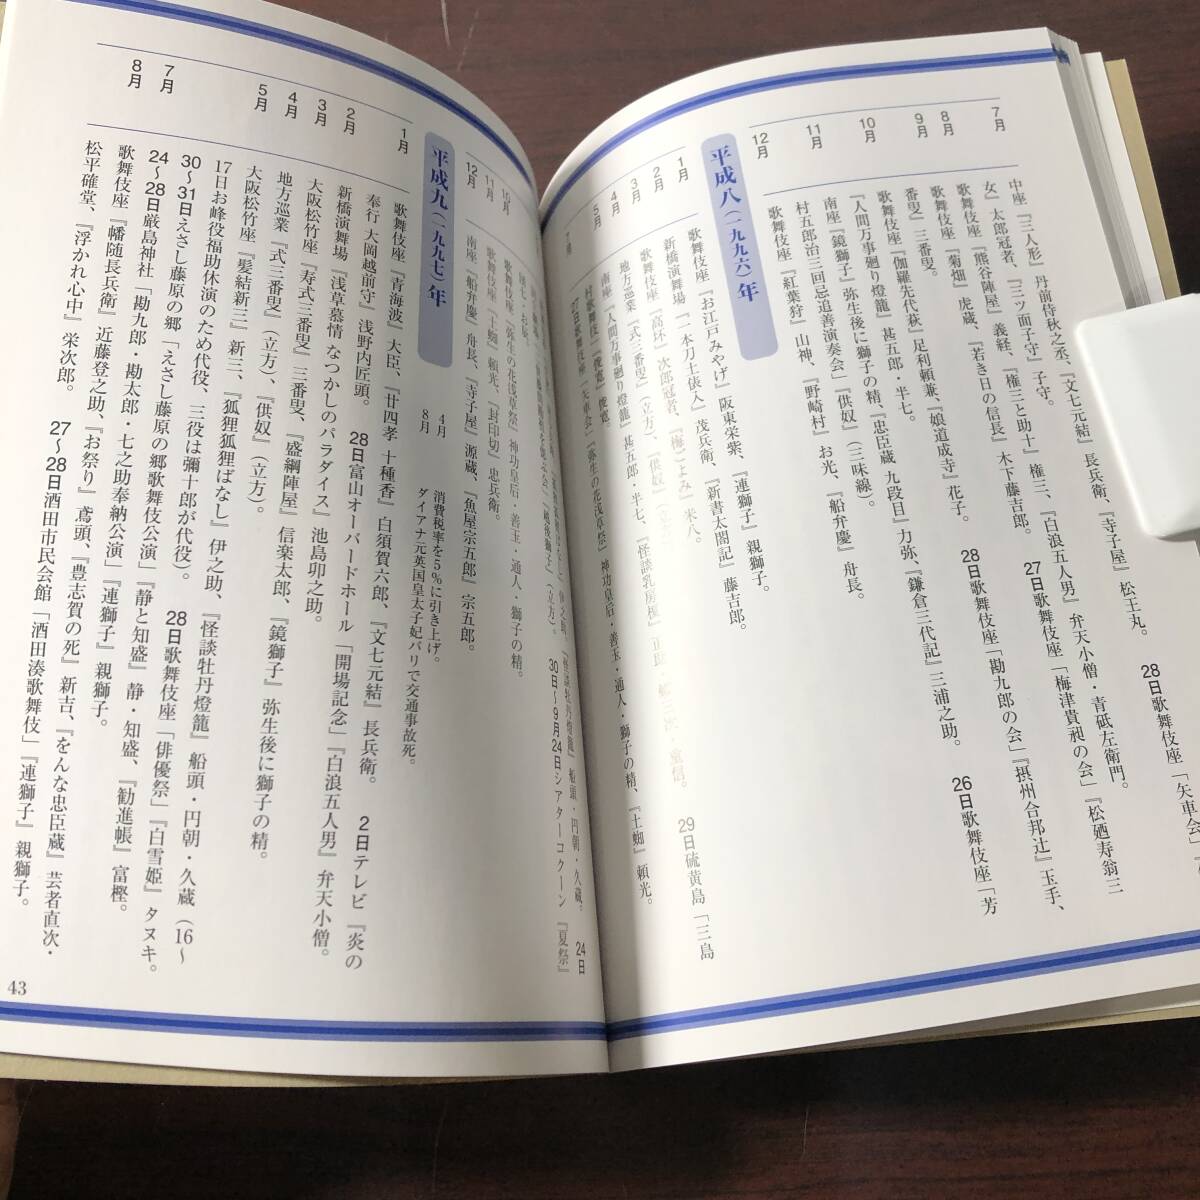 7月
中座『三人形』丹前侍秋之丞、『文七元結』長兵衛、『寺子屋』松王丸。 28日歌舞伎座「矢車会」
女』太郎冠者、『三ツ面子守』子守。
8月
歌舞伎座『熊谷陣屋』義経、『権三と助十』権三、『白浪五人男』弁天小僧・青砥左衛門。
9月
歌舞伎座『菊畑』虎蔵、『若き日の信長』木下藤吉郎。 27日歌舞伎座「梅津貴昶の会」『松廼寿翁三
番叟』三番叟。
10月
歌舞伎座『伽羅先代萩』足利頼兼、『娘道成寺』花子。 28日歌舞伎座「勘九郎の会」『摂州合邦辻』玉手、
『人間万事廻り燈籠』甚五郎・半七。
11月
南座『鏡獅子』弥生後に獅子の精、『忠臣蔵 九段目』力弥、『鎌倉三代記』三浦之助。 26日歌舞伎座「芳
村五郎治三回忌追善演奏会」『供奴』(三味線)。
12月
歌舞伎座『紅葉狩』山神、『野崎村』お光、『船弁慶』舟長。
平成八(一九九六)年
1月
歌舞伎座『お江戸みやげ』阪東栄紫、『連獅子』親獅子。
2月
新橋演舞場『一本刀土俵入』茂兵衛、『新書太閤記』藤吉郎。
3月
歌舞伎座『高坏』次郎冠者、『梅ごよみ』米八。 29日硫黄島「三島
村歌舞伎」『俊寛』俊寛。
4月
地方巡業『式三番叟』(立方)、『供奴』
5月
南座『人間万事廻り燈籠』甚五郎・半七、『怪談乳房榎』正助・
7月
27日歌舞伎座「矢車会」『弥生の花浅草祭』神功皇后・善玉・通人・獅子の精、『土蜘』頼光。
『怪談牡丹燈籠』船頭・円朝・久蔵。 24日
30日〜9月24日シアターコクーン『夏祭』
10月
歌舞伎座『弥生の花浅草祭』神功皇后・善玉・通人・獅子の精。
11月
歌舞伎座『土蜘』頼光、『封印切』忠兵衛。
12月
南座『船弁慶』舟長、『寺子屋』源蔵、『魚屋宗五郎』宗五郎。
平成九(一九九七)年
4月 消費税率を5%に引き上げ。
8月 ダイアナ元英国皇太子妃パリで交通事故死。
1月
歌舞伎座『青海波』大臣、『廿四孝 十種香』白須賀六郎、『文七元結』長兵衛。 2日テレビ『炎の
奉行 大岡越前守』浅野内匠頭。
2月
新橋演舞場『浅草慕情 なつかしのパラダイス』池島卯之助。
28日富山オーバードホール「開場記念」『白浪五人男』弁天小僧。
3月
大阪松竹座『寿式三番叟』三番叟、『盛綱陣屋』信楽太郎、『鏡獅子』弥生後に獅子の精。
4月
地方巡業『式三番叟』(立方)、『供奴』(立方)。
5月
大阪松竹座『髪結新三』新三、『狐狸狐狸ばなし』伊之助、『怪談牡丹燈籠』船頭・円朝・久蔵(16〜
17日お峰役福助休演のため代役、三役は彌十郎が代役)。 28日歌舞伎座「俳優祭」『白雪姫』タヌキ。
30〜31日えさし藤原の郷「えさし藤原の郷歌舞伎公演」『静と知盛』静・知盛、『勧進帳』富樫。
7月
24〜28日厳島神社「勘九郎・勘太郎・七之助奉納公演」『連獅子』親獅子。
8月
歌舞伎座『幡随長兵衛』近藤登之助、『お祭り』鳶頭、『豊志賀の死』新吉、『をんな忠臣蔵』芸者直次・
松平確堂、『浮かれ心中』栄次郎。 27〜28日酒田市民会館「酒田湊歌舞伎」『連獅子』親獅子。
43